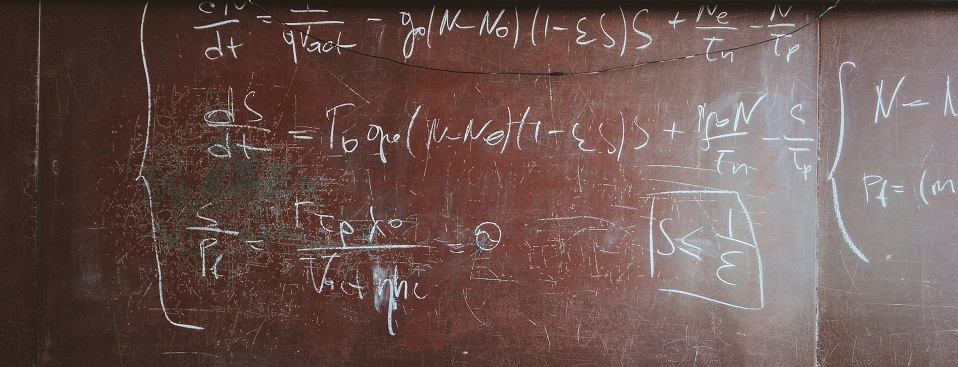 dN/dt = I/qVact - g₀(N-N₀)(1-εS)S + Ne/τn - N/τp
dS/dt = Γ₀g₀(N-N₀)(1-εS)S + N/τn - S/τp
S/Pf = Γτpλ₀/Vact ηhc =
S ≤ 1/ε
N -
Pf = (m